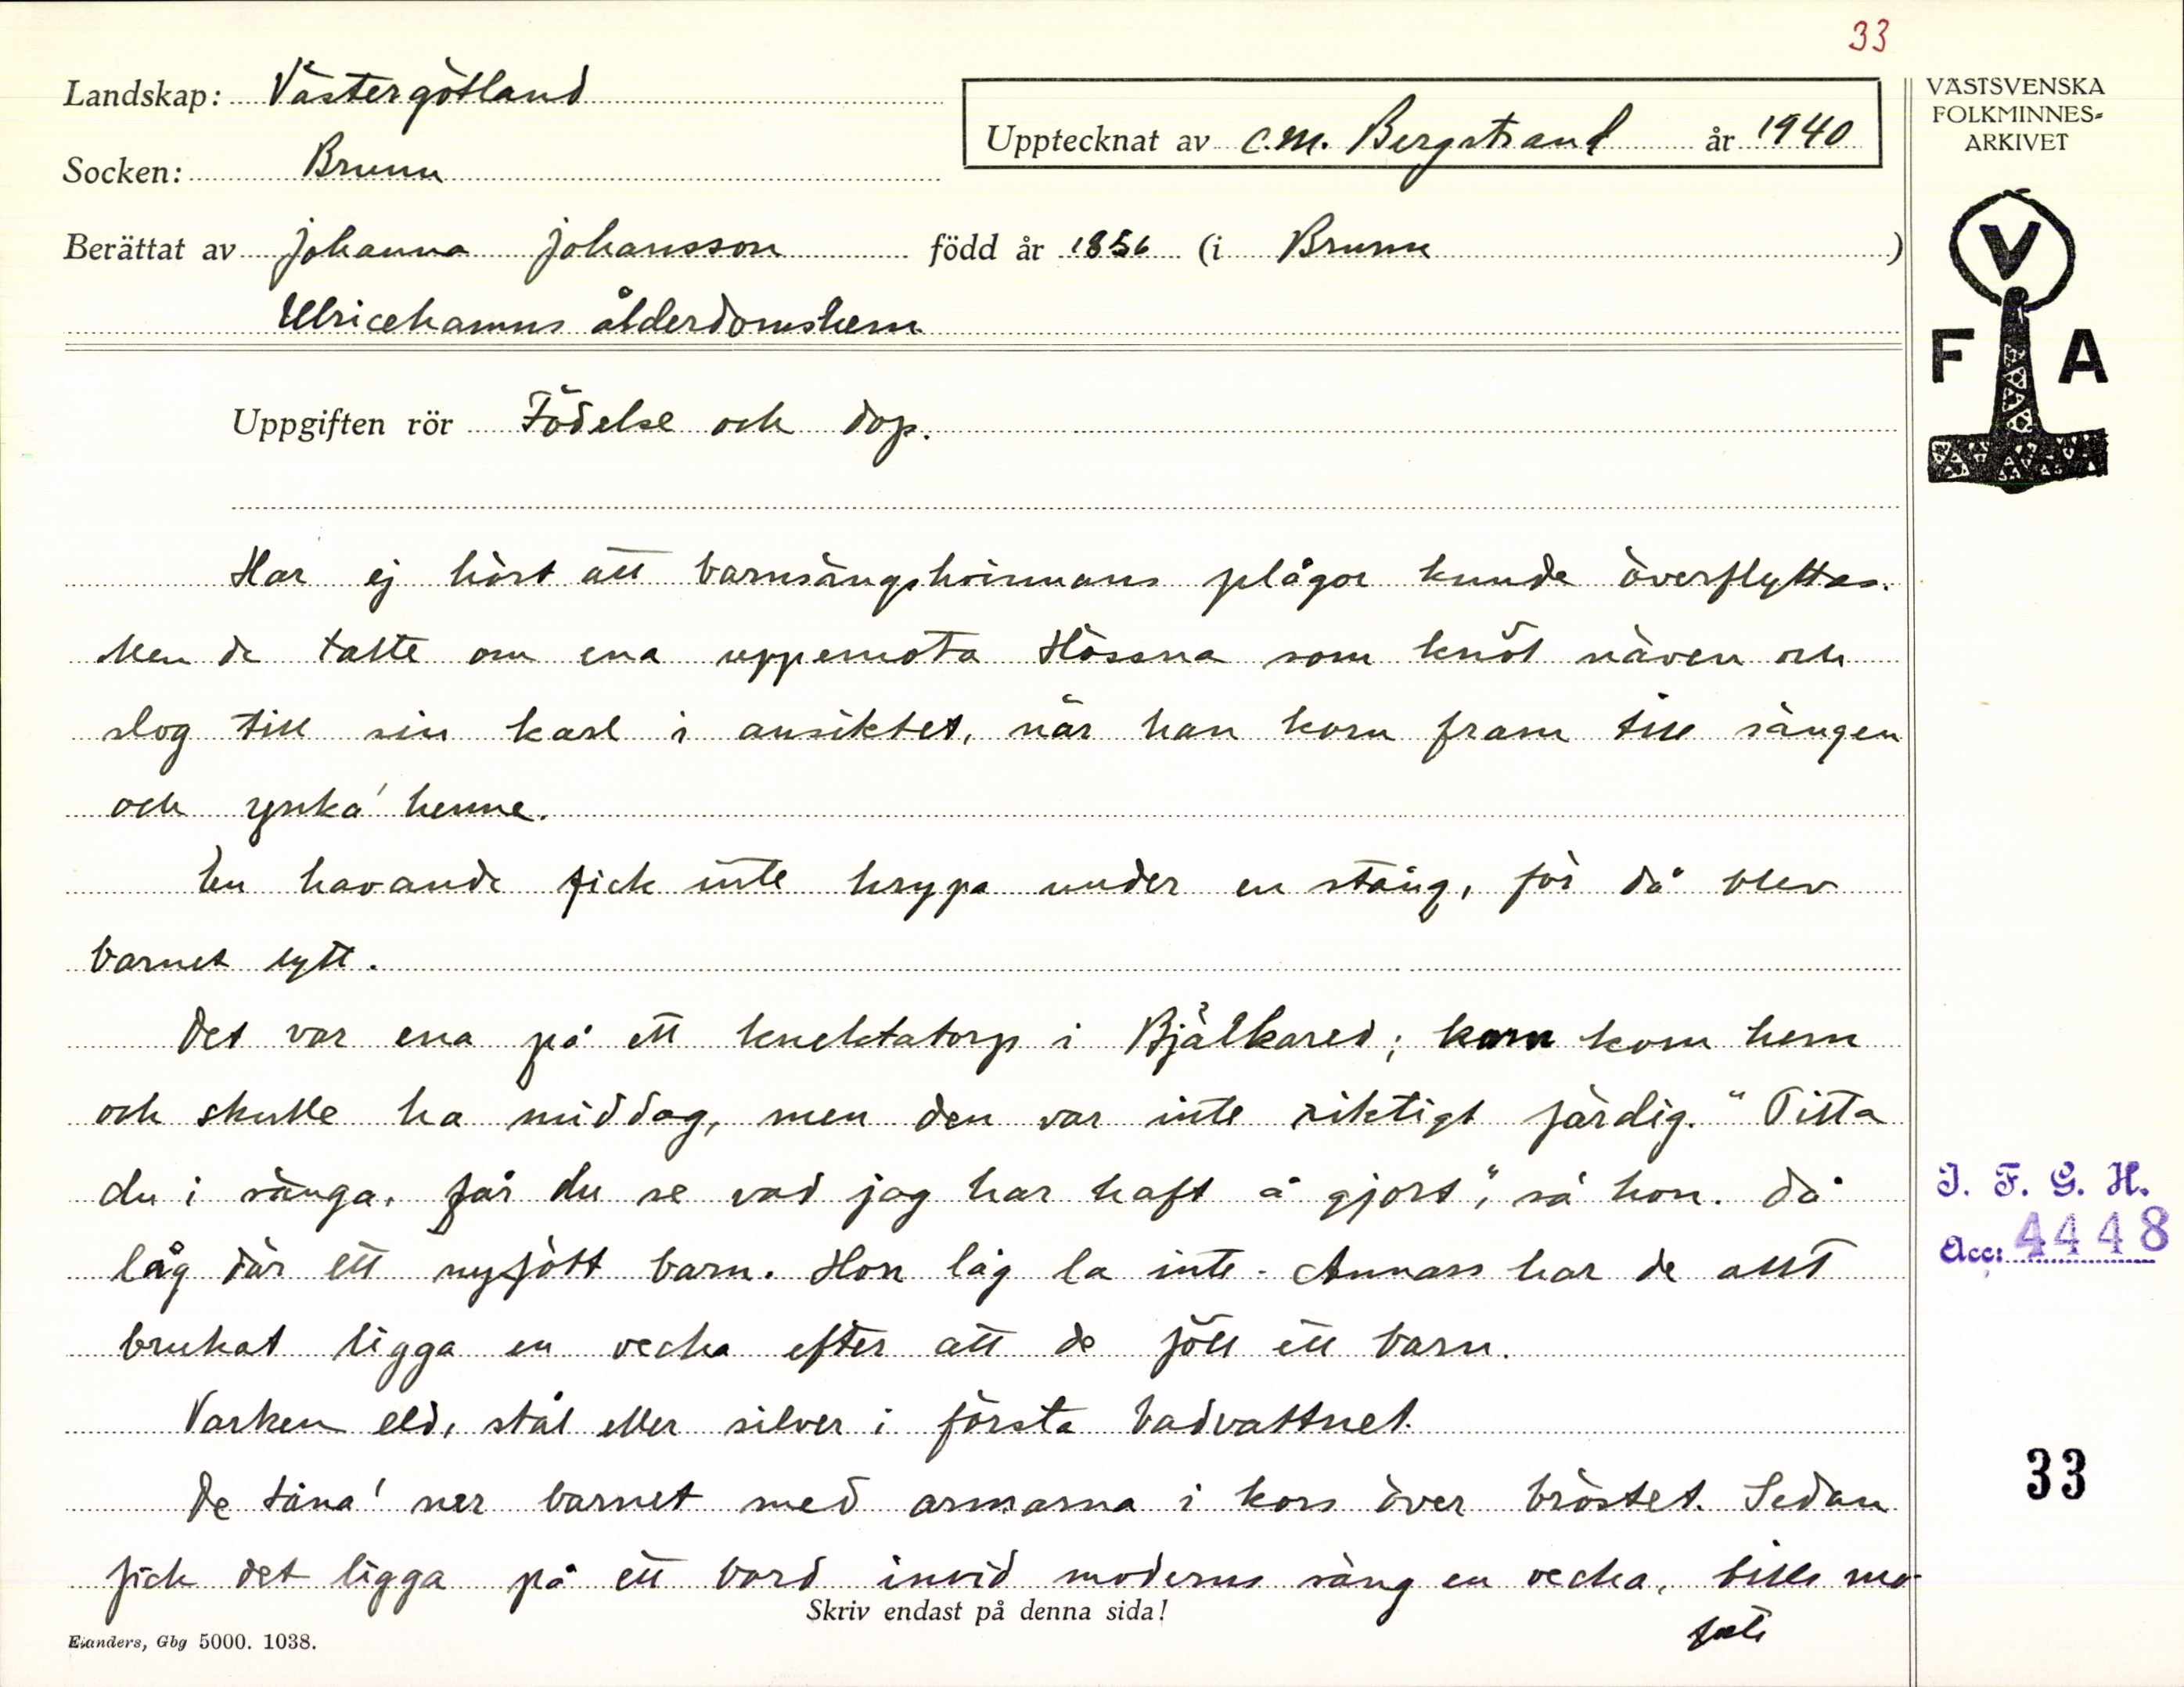 33
Landskap: Västergötland
Upptecknat av C.M. Bergstrand år 1940
Socken: Brunn
Berättat av Johanna Johansson född år 1856 (i Brunn )
Ulricehamns ålderdomshem
VÄSTSVENSKA
FOLKMINNES-
ARKIVET
V
F A
Uppgiften rör Födelse och dop.
Har ej hört att barnsängskvinnans plågor kunde överflyttas.
Men de talte om ena uppemota Hössna som knöt näven och
slog till sin karl i ansiktet, när han kom fram till sängen
och ynka' henne.
En havande fick inte krypa under en stång, för då blev
barnet lytt.
Det var ena på ett knektatorp i Bjälkared; karn kom hem
och skulle ha middag, men den var inte riktigt färdig. "Titta
du i sänga, får du se vad jag har haft å gjort", sa hon. Då
låg där ett nyfött barn. Hon låg la inte. Annars har de allt
brukat ligga en vecka efter att de fött ett barn.
Varken eld, stål eller silver i första badvattnet.
De lina' ner barnet med armarna i kors över bröstet. Sedan
fick det ligga på ett bord invid moderns säng en vecka, tills mo-
Skriv endast på denna sida!
Elanders, Gbg 5000. 1038.
I. F. G. H.
Acc: 4448
33